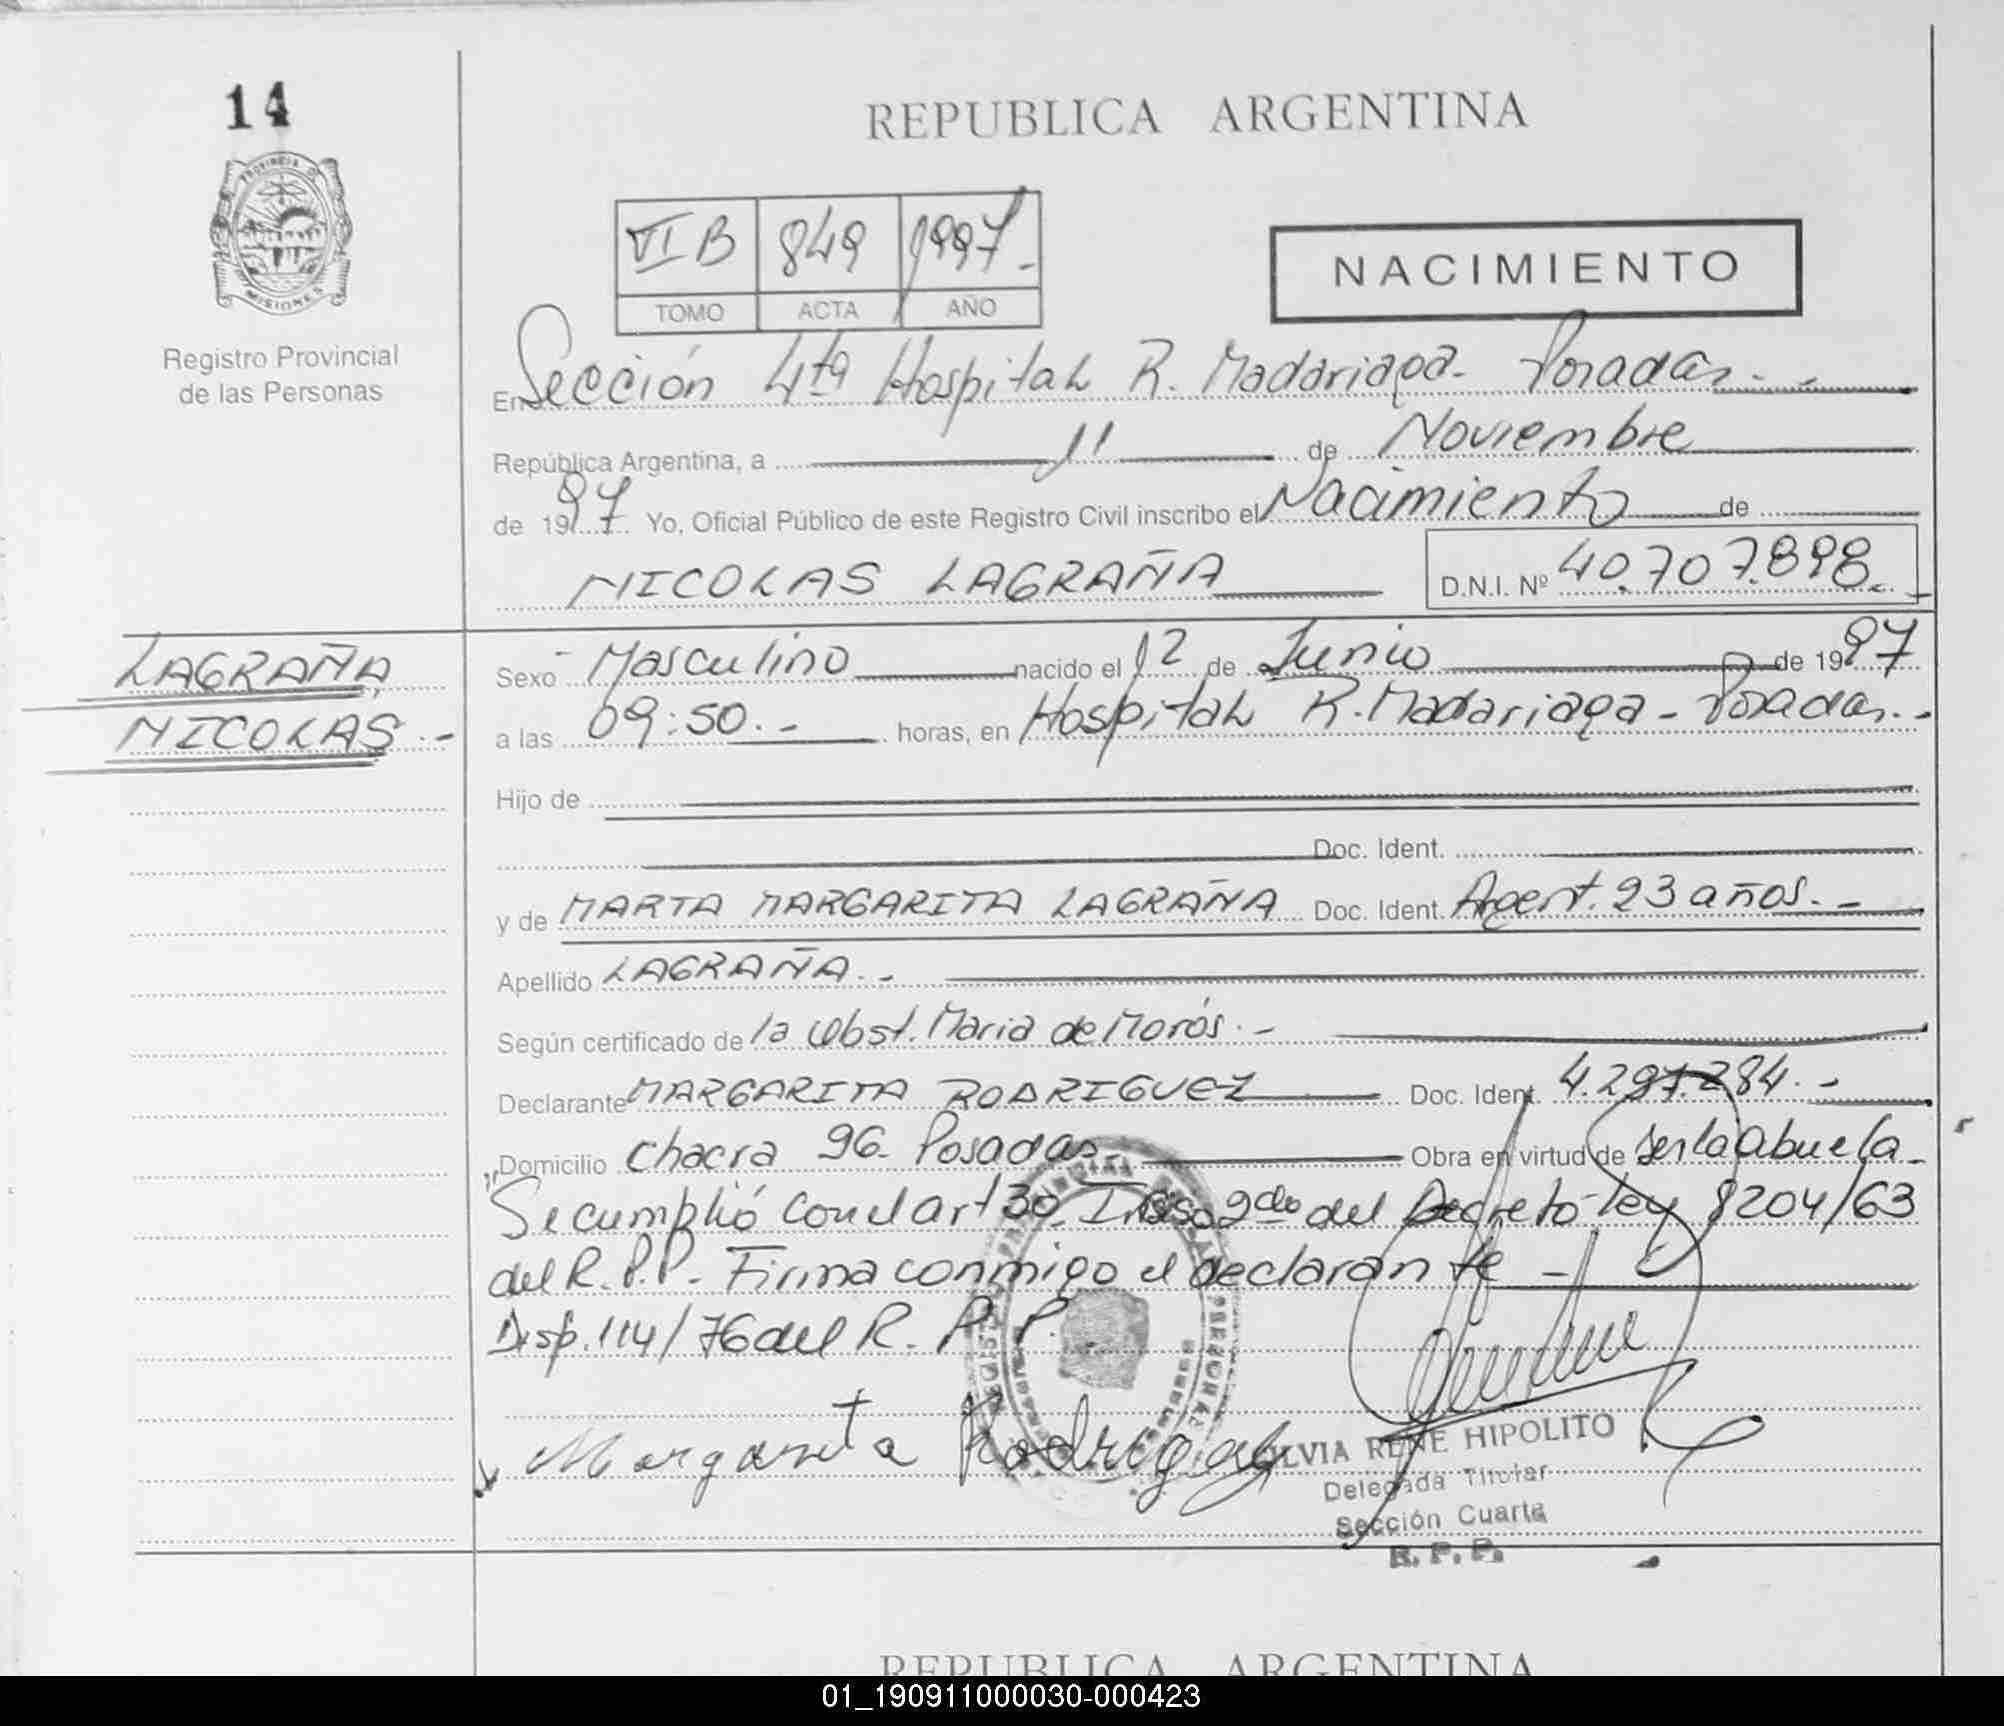 14
REPUBLICA ARGENTINA
PROVINCIA D
MISIONES
Registro Provincial
de las Personas
VI B 849 1997.-
TOMO ACTA AÑO
NACIMIENTO
En Sección 4ta Hospital R. Madariaga- Posadas.-
República Argentina, a 11 de Noviembre
de 1997 Yo, Oficial Público de este Registro Civil inscribo el Nacimiento de
NICOLAS LAGRAÑA D.N.I. Nº 40.707.898.-
LAGRAÑA,
NICOLAS.-
Sexo Masculino nacido el 12 de Junio de 1997
a las 09:50.- horas, en Hospital R. Madariaga - Posadas.-
Hijo de
Doc. Ident.
y de MARTA MARGARITA LAGRAÑA Doc. Ident. Argent. 23 años.-
Apellido LAGRAÑA.-
Según certificado de la Obst. Maria de Morós.-
Declarante MARGARITA RODRIGUEZ Doc. Ident. 4.297.284.-
Domicilio Chacra 96 Posadas Obra en virtud de ser la abuela-
Se cumplió con el art 30 Inciso 2do del Decreto-ley 8204/63
del R.P.P- Firma conmigo el declarante -
Disp. 114/76 del R. P. P.
Margarita Rodrigez
SILVIA RENE HIPOLITO
Delegada Titular
Sección Cuarta
R. P. P.
REPUBLICA ARGENTINA
01_190911000030-000423